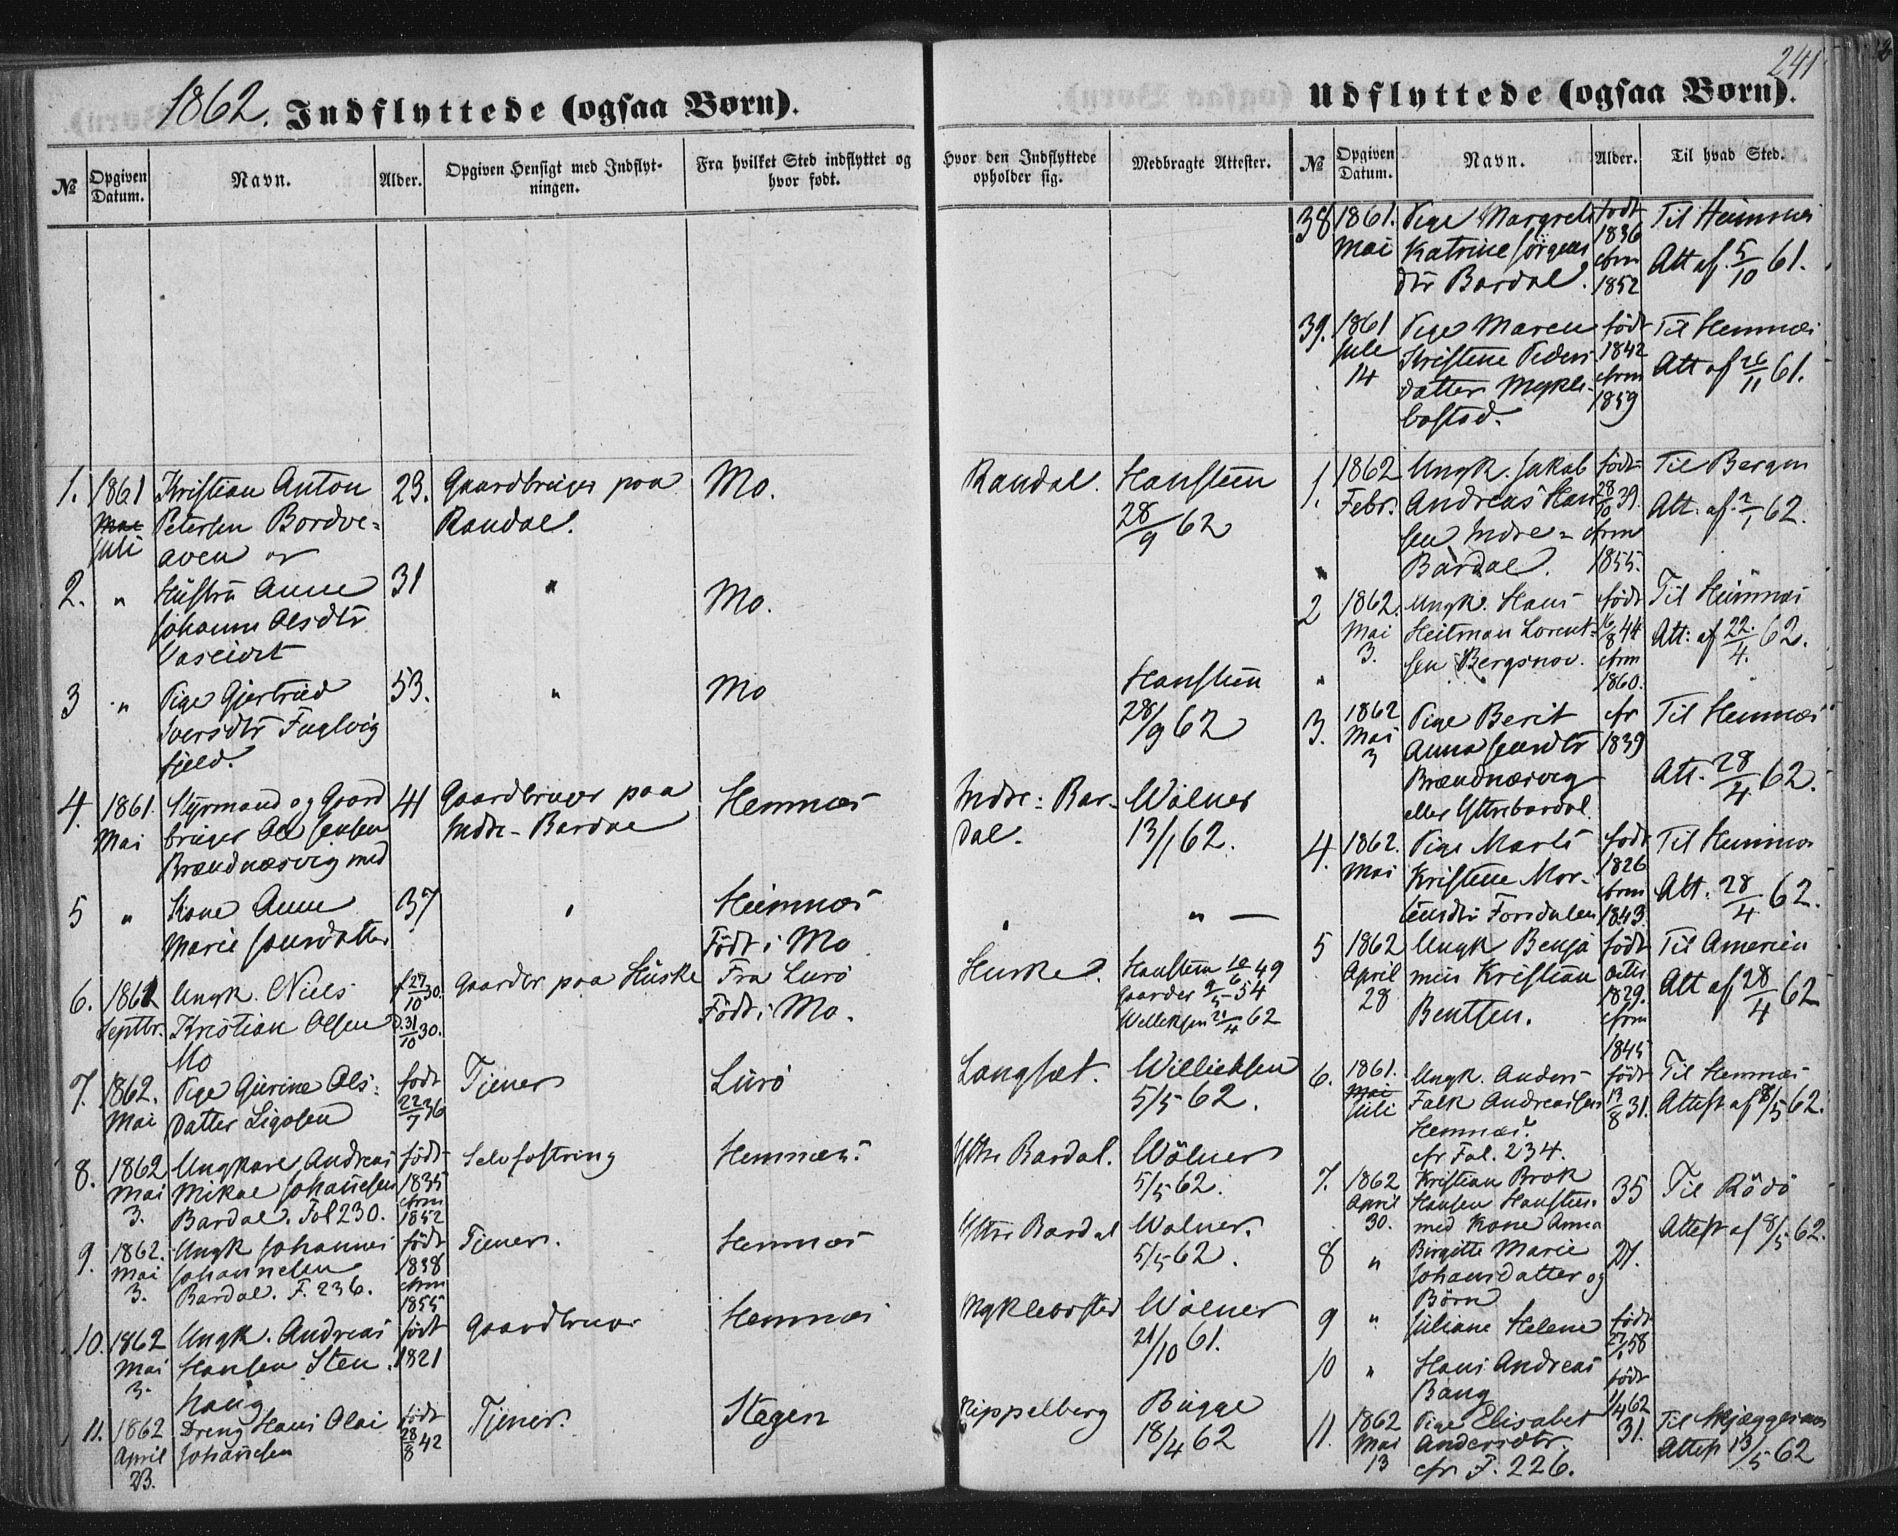 1862. Indflyttede (ogsaa Børn).
№
Opgiven Datum.
Navn.
Alder.
Opgiven Hensigt med Indflyt-
ningen.
Fra hvilket Sted indflyttet og
hvor født.
Hvor den Indflyttede
opholder sig.
Medbragte Attester.
1. 1861 Kristian Anton 23. Gaardbruger paa Mo. Randal. Hansteen
Mai Petersen Bordve= Randal. 28/9 62
Juli
aven og
2. " Hustru Anne 31 " Mo.
Johanna Olsdtr
3 " Pige Gjertrud 53. " Mo Hansteen
Iversdtr Fuglvig 28/9 62
fjeld.
4. 1861. Styrmand og Gaard 41 Gaardbruger paa Hemnæs Indre=Bar- Wölner
Mai bruger Ole Jensen Indre-Bardal dal. 13/1 62.
Brændnæsvig med
5 " Kone Anne 37 " Hemnæs " " —
Marie Jensdatter Født i Mo
6. 1861 Ungk. Niels f 27/10 30. Gaardbr paa Huske Fra Lurö Huske. Hansteen 10/6 49
Septbr. Kristian Olsen D. 31/10 30. Født i Mo. Gaarder 9/5 54
Mo Willeksen 21/4 62
7. 1862. Pige Gjerine Ols- født Tjener Lurö Langset. Willichsen
Mai datter Ligosen 22/7 36 5/5 62.
8. 1862 Ungkarl Andreas født Selvfostring Hemnæs. Ytre Bardal. Wölner
Mai Mikal Johannesen 1835 5/5 62.
3. Bardal. Fol 230. cfrm 1852
9. 1862. Ungk Johannes født Tjener. Hemnæs Ytre Bardal Wölner.
Mai Johannesen 1838 5/5 62.
3. Bardal. F. 236. cfrm 1855
10. 1862 Ungk. Andreas født Gaardbruger Hemnæs Myklebostad Wölner
Mai Hansen Sten 1821 21/10 61.
3. haug
11. 1862 Dreng Hans Olai født Tjener. Stegen Nippelberg Bugge
April Johansen 28/8 42 18/4 62
23.
241
Udflyttede (ogsaa Børn).
№
Opgiven Datum.
Navn.
Alder.
Til hvad Sted.
38 1861. Pige Margrete født Til Hemnæs
Mai Katrine Jørgens 1836 Att af. 5/10 61.
dtr Bardal. cfrm 1852
39. 1861 Pige Maren født Til Hemnæs
Juli Kristine Peders 1842 Att af 26/11 61.
14 datter Mykle- cfrm
bostad. 1859
1. 1862 Ungk. Jakob født Til Bergen
Febr. Andreas Han 28/10 39. Att. af. 2/1 62.
sen Indre = cfrm
Bardal. 1855.
2 1862. Ungk. Hans født Til Hemnæs
Mai Heitman Lorent- 16/8 44 Att: af 22/4. 62.
3. sen Bergsnov. cfrm
1860.
3. 1862 Pige Berit cfr Til Hemnæs
Mai Anna Jensdtr 1839
3 Brændnæsvig Att. 28/4 62.
eller Ytrebardal.
4. 1862. Pige Marte født Til Hemnæs
Mai Kristine Mor- 1826
tensdtr Forsdalen cfrm 1843 Att. 28/4 62.
5 1862 Ungk Benja født Til Amerika
April min Kristian 1829. Att af 28/4 62
28 Bentsen. cfrm
1845
6. 1861. Ungk. Anders født Til Hemnæs
Mai Falk Andreassen 13/8 31. Attest af 8/5 62.
Juli Hemnæs.
cfr Fol. 234.
7. 1862 Kristian Brok 35 Til Rödö
April Hansen Hansteen
30. med Kone Anna Attest af 8/5 62.
8 " Birgitte Marie 27.
Johansdatter og
Børn
9 " Juliane Helene født
58
10 " Hans Andreas født
Bang 1/4 62
11. 1862 Pige Elisabet 31. Til
Mai Andersdtr. Attest 13/5 62
13 cfr F. 226.